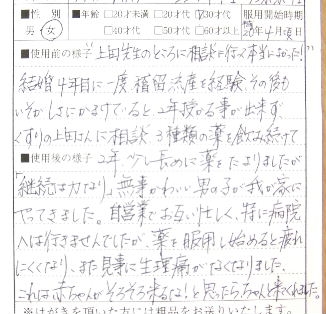 ■性 別 ■年齢 □20才未満 □20才代 ☑30才代 服用開始時期
男 女 □40才代 □50才代 □60才以上 20年4月頃
■使用前の様子 "上田先生のところに相談に行く本当によかった!"
結婚4年目に一度、稽留流産を経験、その後も
いそがしさにかまけていると、2年授かる事が出来ず、
くすりの上田さんに相談 3種類の薬を飲み続けて
■使用後の様子 2年 少し長めに薬をたよりましたが
「継続は力なり」無事かわいい男の子が我が家に
やってきました。自営業でお互い忙しく、特に病院
へは行きませんでしたが、薬を服用し始めると疲れ
にくくなり、また見事に生理痛がなくなりました、
これは赤ちゃんがそろそろ来るな!と思ったらちゃんと来てくれました。
※はがきを頂いた方には粗品をお送りいたします。